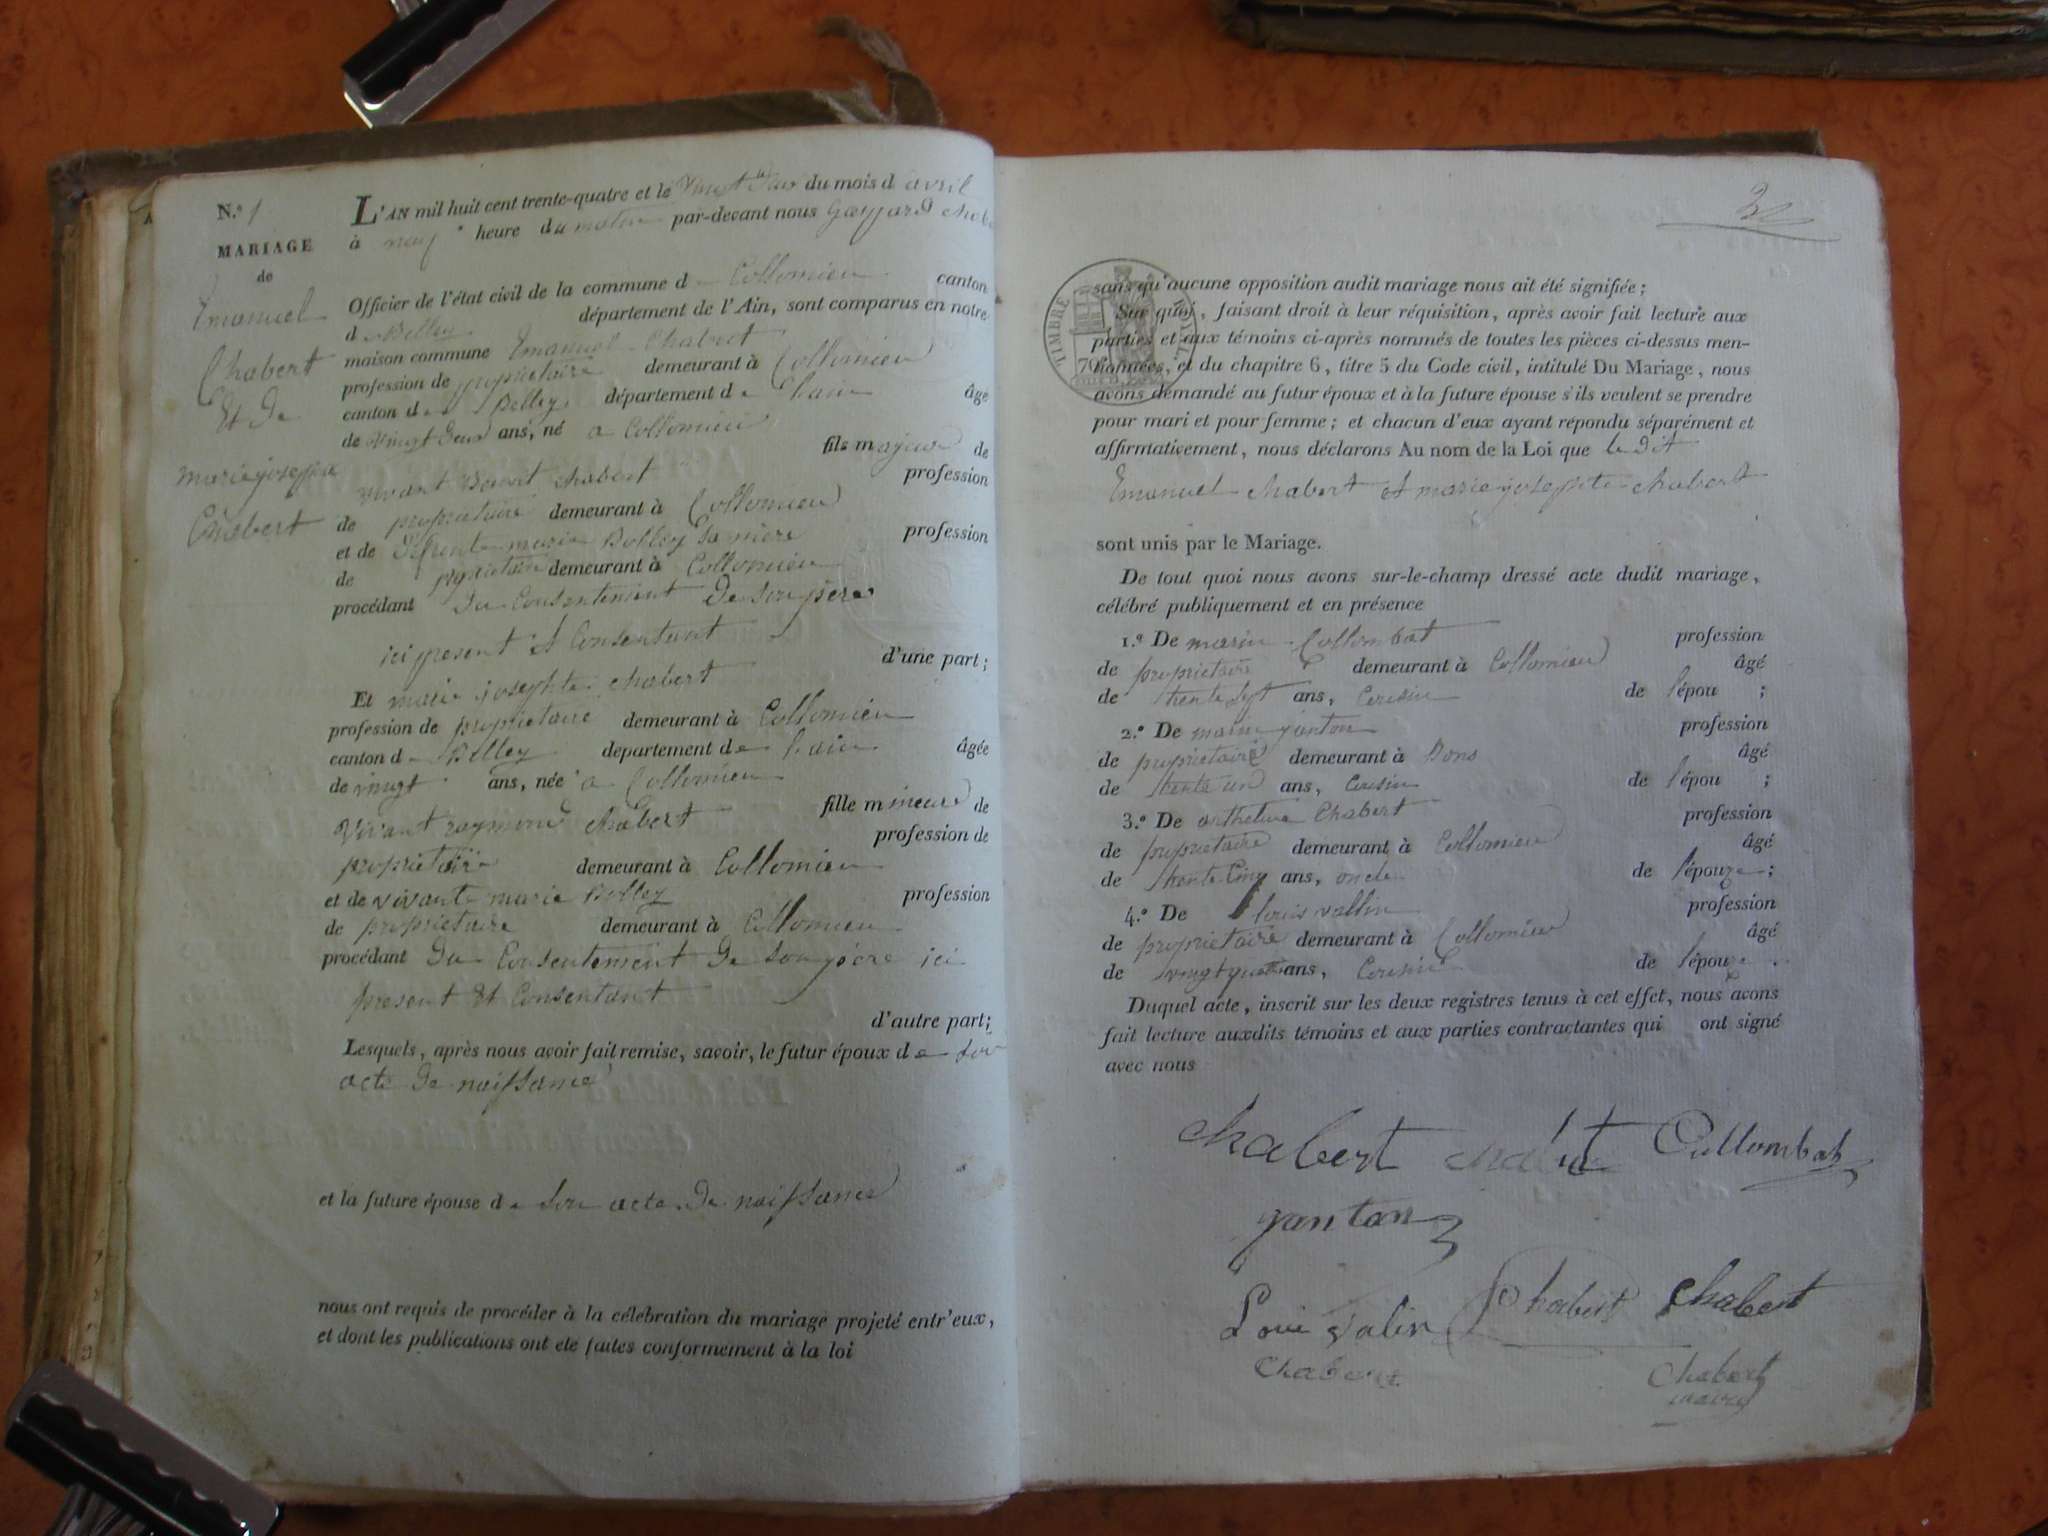 N.º 1
MARIAGE
de
Emanuel
Chabert
Et De
marie josephte
Chabert
L'AN mil huit cent trente-quatre et le vingt deux du mois d avril
à neuf heure du matin par-devant nous Gaspard Chabe
Officier de l'état civil de la commune d Collomieu canton
d Belley département de l'Ain, sont comparus en notre
maison commune Emanuel Chabert
profession de propriétaire demeurant à Collomieu
canton de Belley département de Lain âgé
de vingt deux ans, né a Collomieu
fils majeur de
vivant Benoit Chabert profession
de propriétaire demeurant à Collomieu
et de défunte marie Bolley sa mère profession
de propriétaire demeurant à Collomieu
procédant du Consentement De son père
ici present Et Consentant
d'une part;
Et marie josephte chabert
profession de propriétaire demeurant à Collomieu
canton d Belley departement de Lain âgée
de vingt ans, née a Collomieu
fille mineure de
Vivant raymond chabert profession de
propriétaire demeurant à Collomieu
et de vivante marie Bolley profession
de propriétaire demeurant à Collomieu
procédant Du Consentement De son père ici
present Et Consentant
d'autre part;
Lesquels, après nous avoir fait remise, savoir, le futur époux de son
acte De naissance
et la future épouse de son acte De naissance
nous ont requis de procéder à la célébration du mariage projeté entr'eux,
et dont les publications ont ete faites conformement à la loi
TIMBRE ROYAL
70
sans qu'aucune opposition audit mariage nous ait été signifiée;
Sur quoi, faisant droit à leur réquisition, après avoir fait lecture aux
parties et aux témoins ci-après nommés de toutes les pièces ci-dessus men-
tionnées, et du chapitre 6, titre 5 du Code civil, intitulé Du Mariage, nous
avons demandé au futur époux et à la future épouse s'ils veulent se prendre
pour mari et pour femme; et chacun d'eux ayant répondu séparément et
affirmativement, nous déclarons Au nom de la Loi que le Dit
Emanuel chabert et marie josephte chabert
sont unis par le Mariage.
De tout quoi nous avons sur-le-champ dressé acte dudit mariage,
célébré publiquement et en présence
1.º De marin Collombat profession
de propriétaire demeurant à Collomieu âgé
de trente sept ans, Cousin de l'épou ;
2.º De marin ganton profession
de propriétaire demeurant à Bons âgé
de trente un ans, Cousin de l'épou ;
3.º De anthelme Chabert profession
de propriétaire demeurant à Collomieu âgé
de trente Cinq ans, oncle de l'épouze;
4.º De louis vallin profession
de propriétaire demeurant à Collomieu âgé
de vingt quatre ans, Cousin de l'épouze
Duquel acte, inscrit sur les deux registres tenus à cet effet, nous avons
fait lecture auxdits témoins et aux parties contractantes qui ont signé
avec nous
chabert chabert Collombat
ganton
Loui valin Chabert chabert
Chabert Chabert
maire